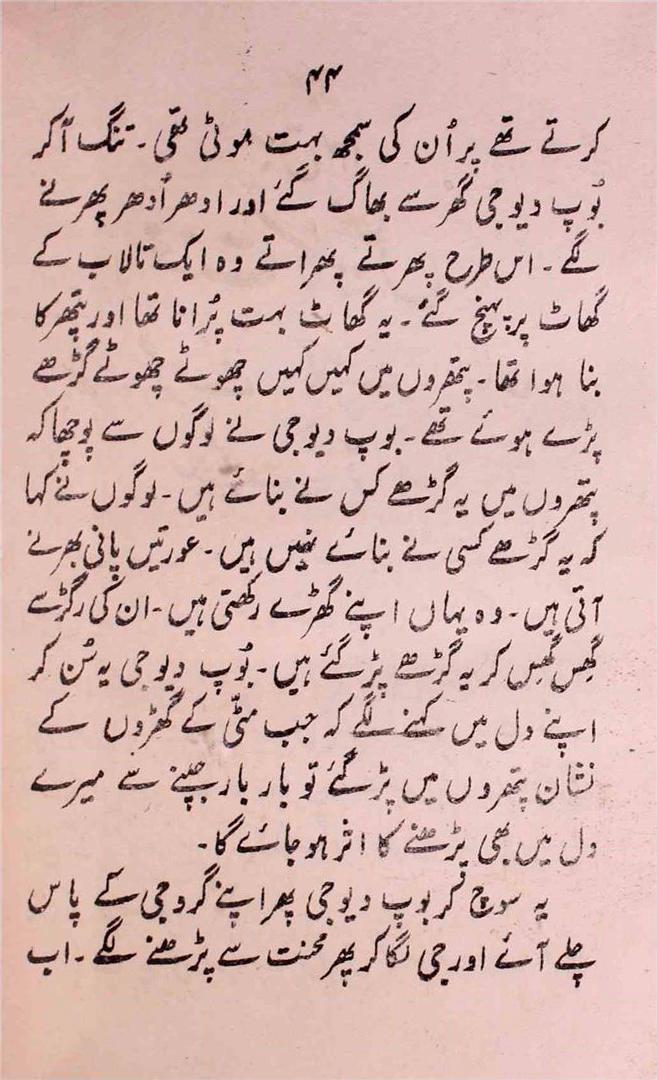 ۴۴
کرتے تھے پر اُن کی سمجھ بہت موٹی تھی۔ تنگ آکر
بُوپ دیوجی گھر سے بھاگ گئے اور ادھر اُدھر پھرنے
لگے۔ اس طرح پھرتے پھراتے وہ ایک تالاب کے
گھاٹ پر پہنچ گئے۔ یہ گھاٹ بہت پُرانا تھا اور پتھر کا
بنا ہوا تھا۔ پتھروں میں کہیں کہیں چھوٹے چھوٹے گڑھے
پڑے ہوئے تھے۔ بوپ دیوجی نے لوگوں سے پوچھا کہ
پتھروں میں یہ گڑھے کس نے بنائے ہیں۔ لوگوں نے کہا
کہ یہ گڑھے کسی نے بنائے نہیں ہیں۔ عورتیں پانی بھرنے
آتی ہیں۔ وہ یہاں اپنے گھڑے رکھتی ہیں۔ ان کی رگڑ سے
گھِس گھِس کر یہ گڑھے پڑ گئے ہیں۔ بُوپ دیوجی یہ سُن کر
اپنے دل میں کہنے لگے کہ جب مٹی کے گھڑوں کے
نشان پتھروں میں پڑ گئے تو بار بار جپنے سے میرے
دل میں بھی پڑھنے کا اثر ہو جائے گا۔
یہ سوچ کر بوپ دیوجی پھر اپنے گروجی کے پاس
چلے آئے اور جی لگا کر پھر محنت سے پڑھنے لگے۔ اب